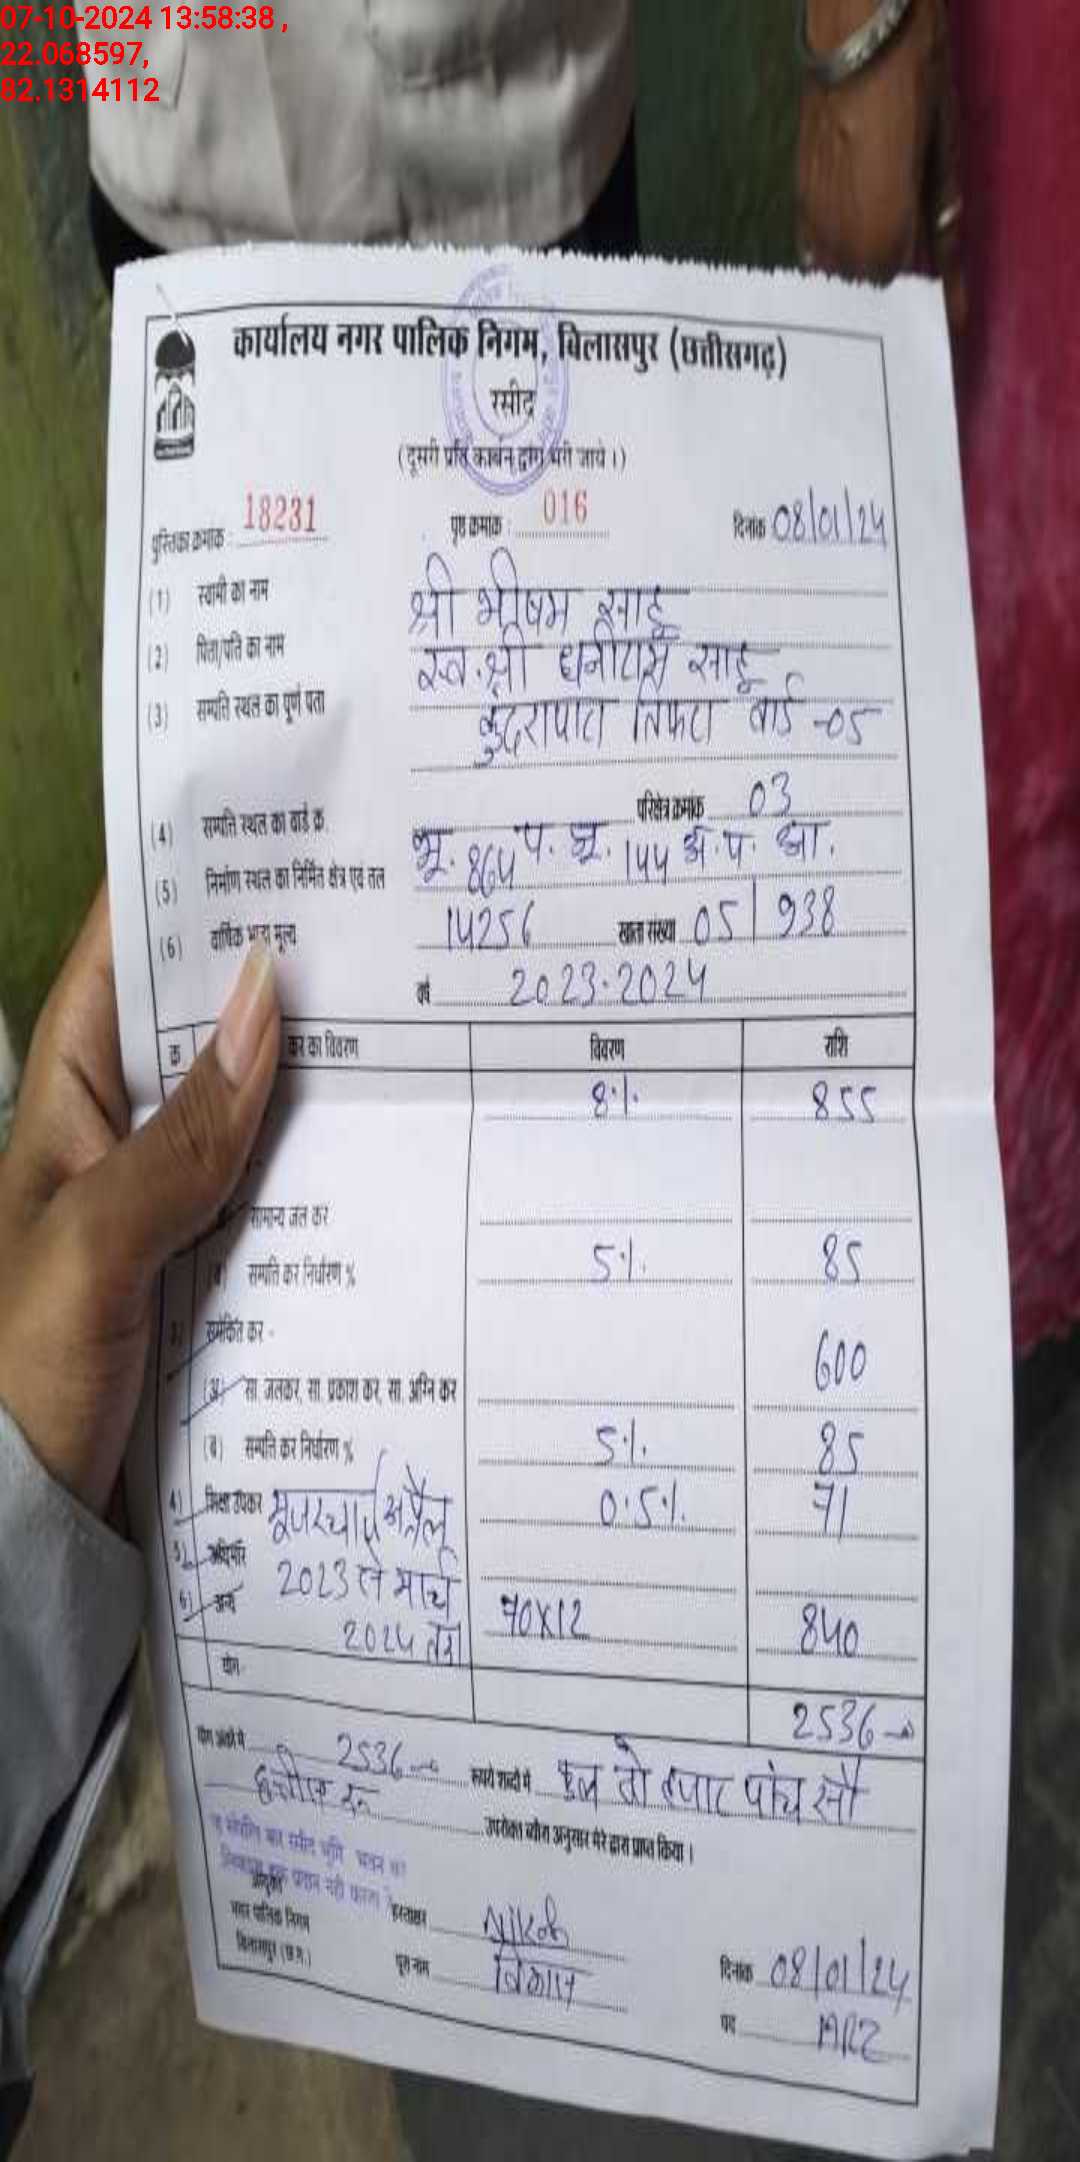 07-10-2024 13:58:38 ,
22.068597,
82.1314112
कार्यालय नगर पालिक निगम, बिलासपुर (छत्तीसगढ़)
रसीद
(दूसरी प्रति कार्बन द्वारा भरी जाये।)
पुस्तिका क्रमांक : 18231 पृष्ठ क्रमांक : 016 दिनांक 08/01/24
(1) स्वामी का नाम श्री भीषम साहू
(2) पिता/पति का नाम स्व. श्री धनीराम साहू
(3) सम्पत्ति स्थल का पूर्ण पता कुदरापारा तिफरा वार्ड -05
(4) सम्पत्ति स्थल का वार्ड क्र. परिक्षेत्र क्रमांक 03
(5) निर्माण स्थल का निर्मित क्षेत्र एवं तल भू. 864 प. भू. 144 अ. प. आ.
(6) वार्षिक भाड़ा मूल्य 14256 खाता संख्या 05/938
वर्ष 2023-2024
क्र कर का विवरण विवरण राशि
8% 855
सामान्य जल कर
(ब) सम्पत्ति कर निर्धारण % 5% 85
3) समेकित कर -
600
(अ) सा. जलकर, सा. प्रकाश कर, सा. अग्नि कर
(ब) सम्पत्ति कर निर्धारण % 5% 85
4) शिक्षा उपकर 0.5% 71
यूजरचार्ज अप्रैल
5) अधिभार
2023 से मार्च
6) अन्य 70X12 840
2024 तक
योग- 2536
योग अंको में 2536 रूपये शब्दों में कुल दो हजार पांच सौ
छत्तीस रू उपरोक्त ब्यौरा अनुसार मेरे द्वारा प्राप्त किया।
आयुक्त
नगर पालिक निगम हस्ताक्षर
बिलासपुर (छ.ग.) पूरा नाम विकास दिनांक 08/01/24
पद ARI